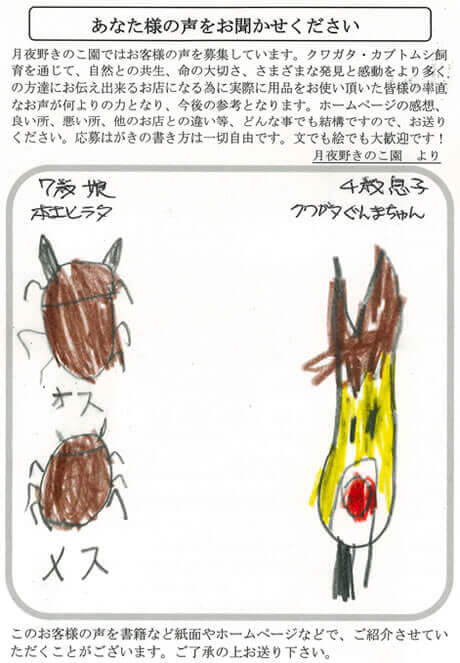 あなた様の声をお聞かせください
月夜野きのこ園ではお客様の声を募集しています。クワガタ・カブトムシ飼育
を通じて、自然との共生、命の大切さ、さまざまな発見と感動をより多く
の方達にお伝え出来るお店になる為に実際に用品をお使い頂いた皆様の率直
なお声が何よりの力となり、今後の参考となります。ホームページの感想、
良い所、悪い所、他のお店との違い等、どんな事でも結構ですので、お送り
ください。応募はがきの書き方は一切自由です。文でも絵でも大歓迎です！
月夜野きのこ園　より
7歳 娘
本土ヒラタ
4歳 息子
クワガタぐんまちゃん
オス
メス
このお客様の声を書籍など紙面やホームページなどで、ご紹介させてい
ただくことがございます。ご了承の上お送り下さい。